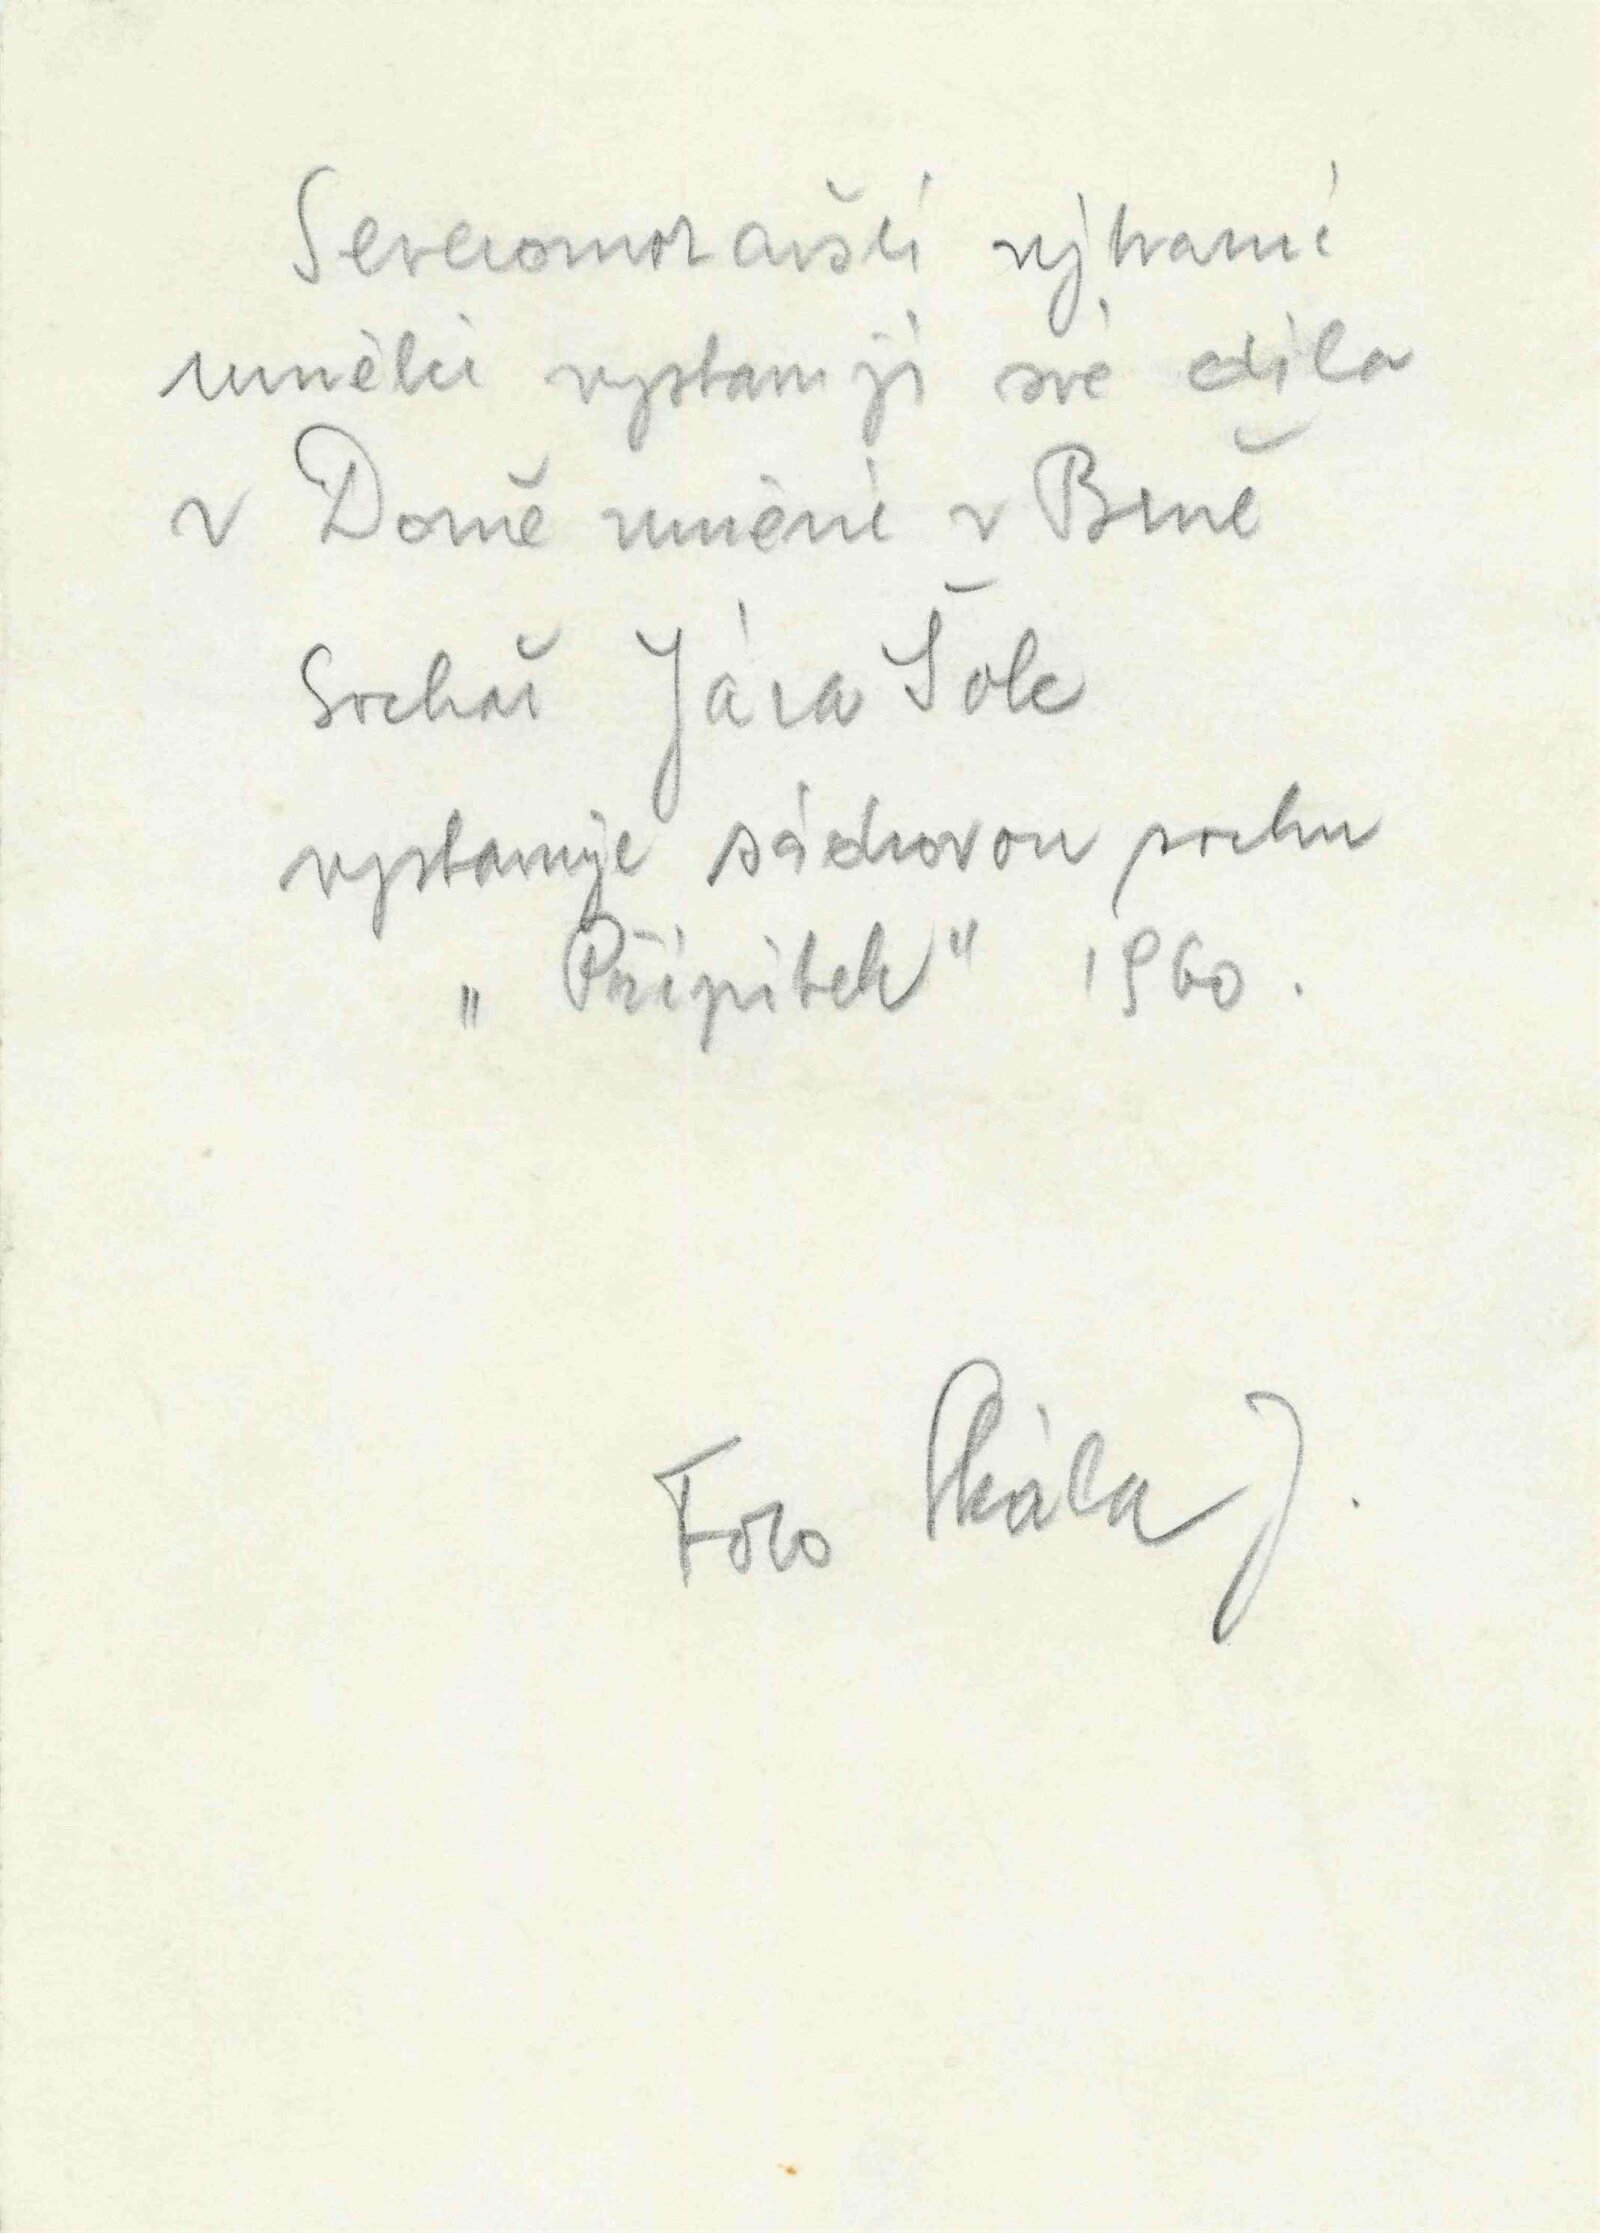 Severomoravští výtvarní
umělci vystavují své díla
v Domě umění v Brně
Sochař Jára Šolc
vystavuje sádrovou sochu
„Přípitek" 1960.
Foto Skála J.